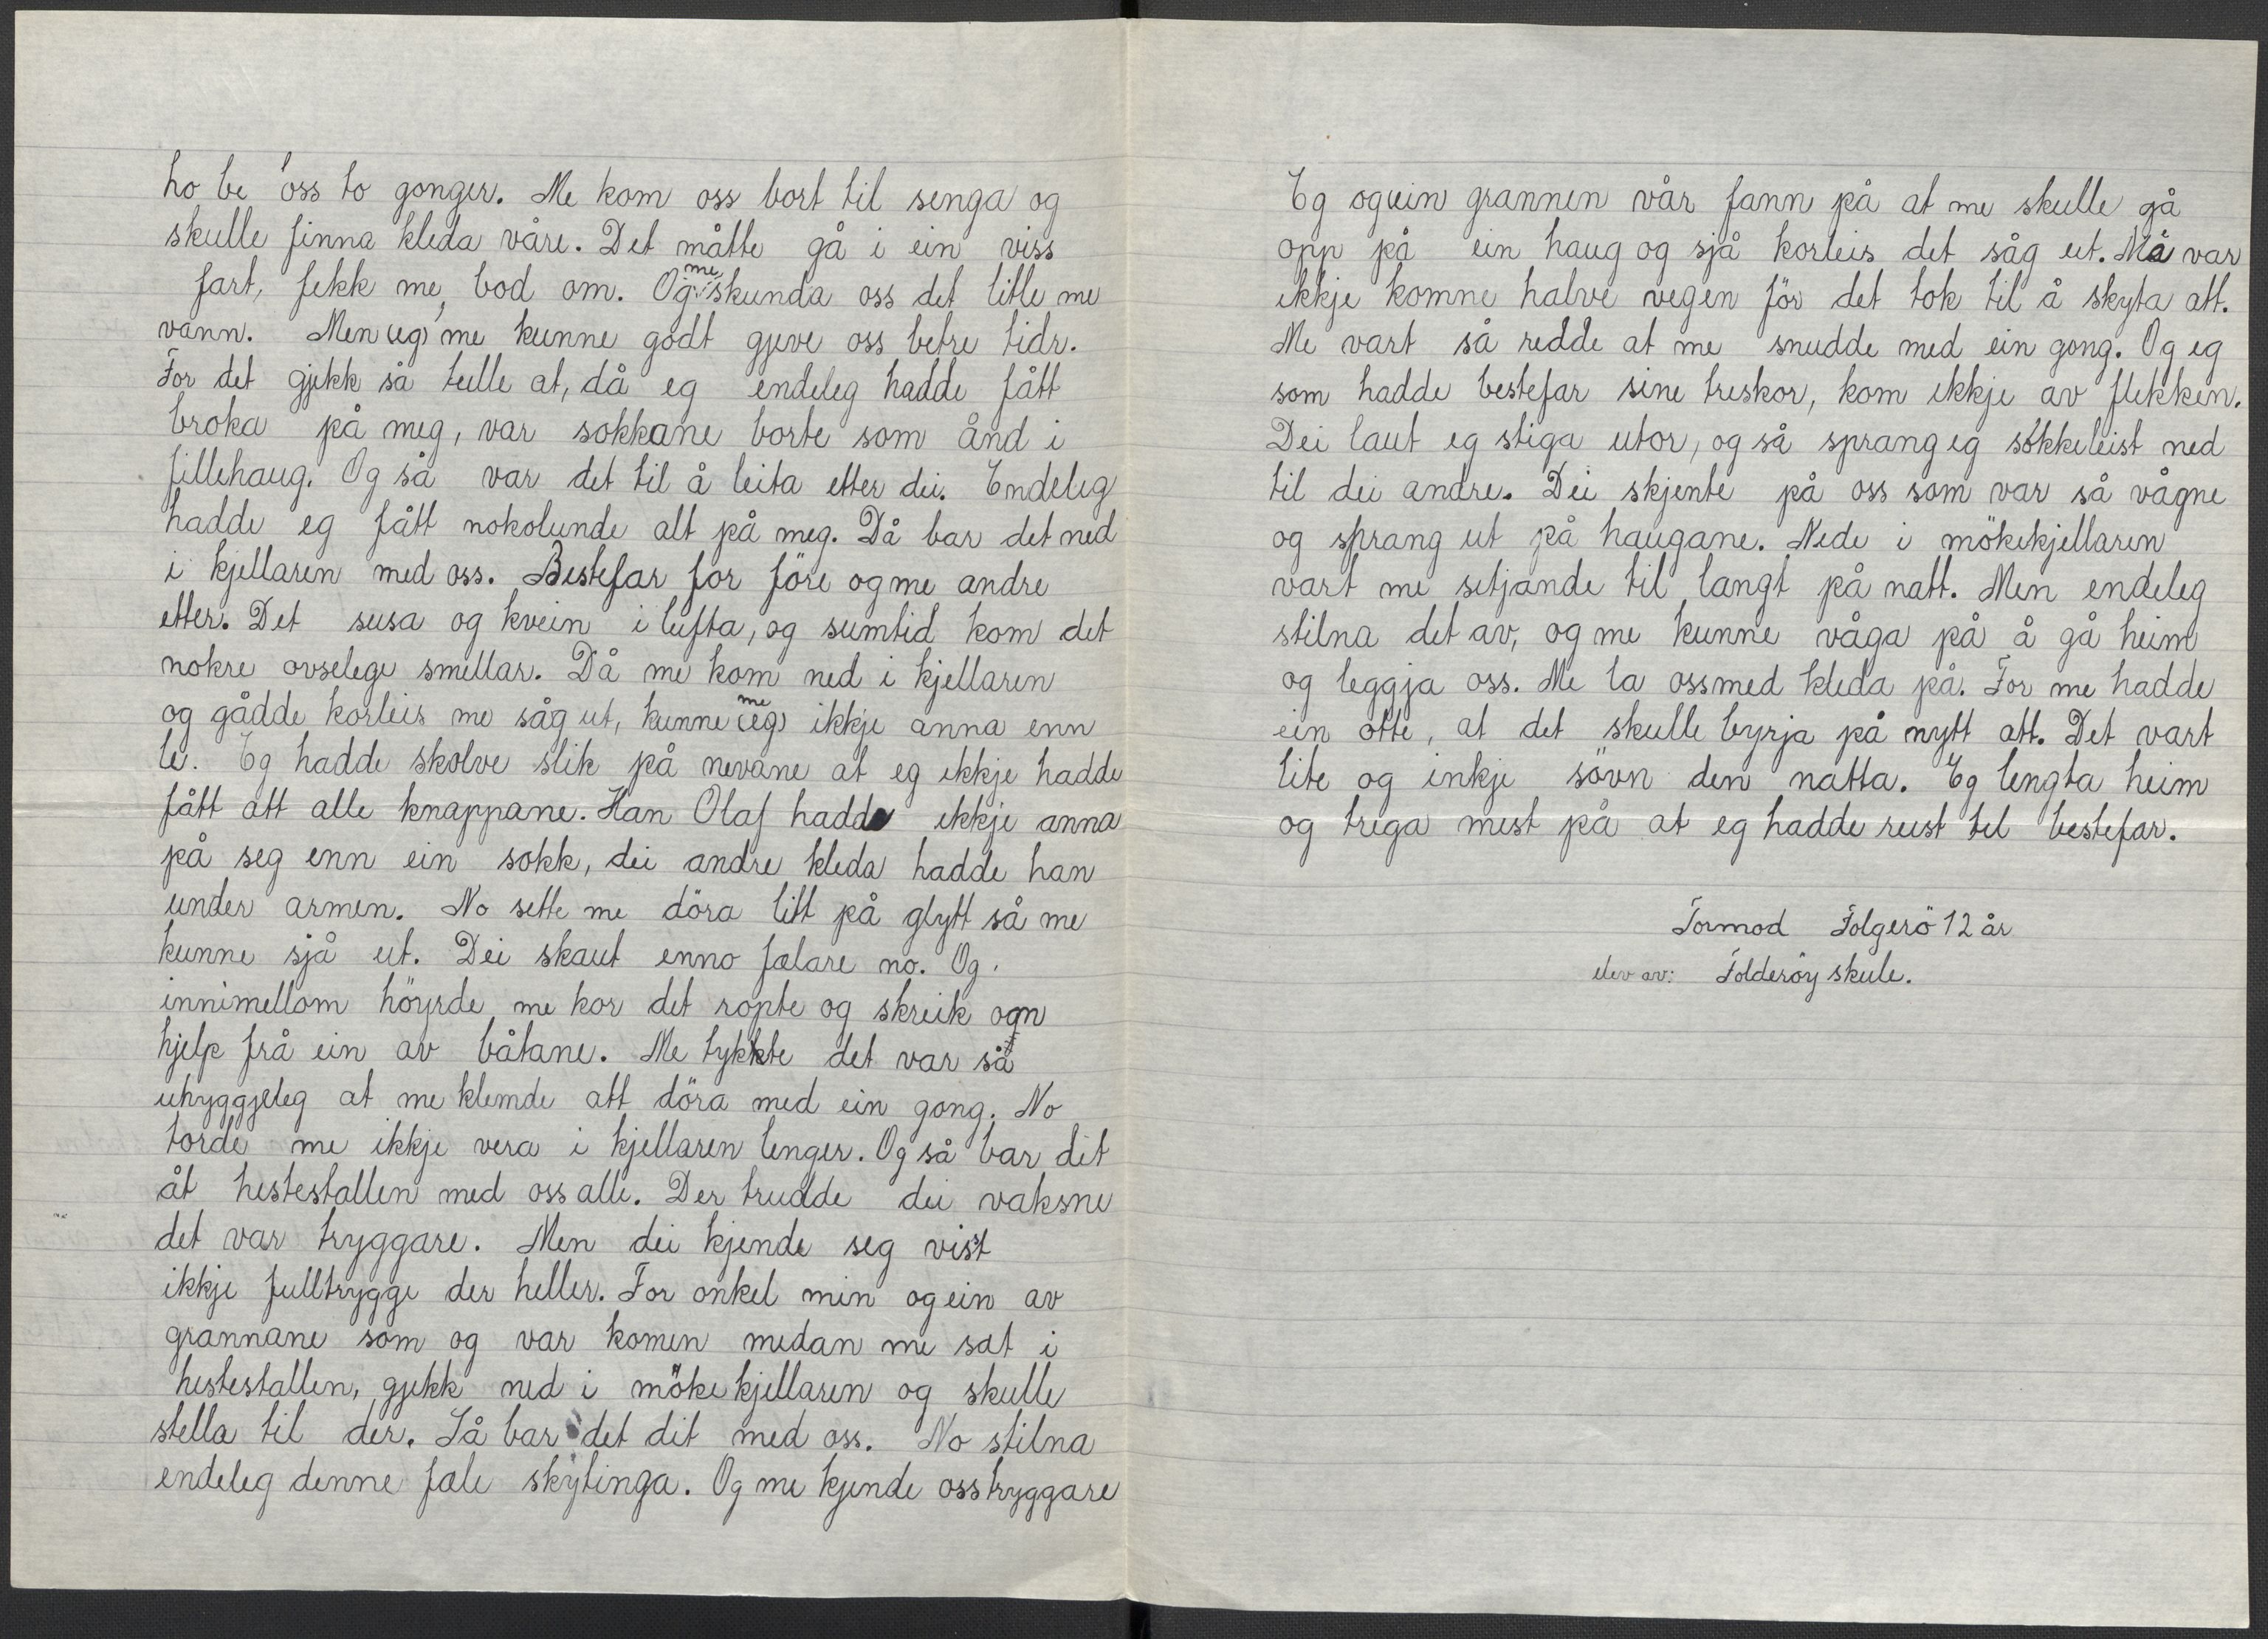 ho be oss to gonger. Me kom oss bort til senga og
skulle finna kleda våre. Det måtte gå i ein viss
fart, fekk me bod om. Og me skunda oss det litle me
vann. Men (eg) me kunne godt gjeve oss betre tidr.
For det gjekk så tulle at, då eg endeleg hadde fått
broka på meg, var sokkane borte som ånd i
fillehaug. Og så var det til å leita etter dei. Endeleg
hadde eg fått nokolunde alt på meg. Då bar det ned
i kjellaren med oss. Bestefar for före og me andre
etter. Det susa og kvein i lufta, og sumtid kom det
nokre ovselege smellar. Då me kom ned i kjellaren
og gådde korleis me såg ut, kunne (eg) me ikkje anna enn
le. Eg hadde skolve slik på nevane at eg ikkje hadde
fått att alle knappane. Han Olaf hadde ikkje anna
på seg enn ein sokk, dei andre kleda hadde han
under armen. No sette me döra litt på glytt så me
kunne sjå ut. Dei skaut enno fælare no. Og
innimellom höyrde me kor det ropte og skreik om
hjelp frå ein av båtane. Me tykkte det var så
uhyggjeleg at me klemde att döra med ein gong. No
torde me ikkje vera i kjellaren lenger. Og så bar det
åt hestestallen med oss alle. Der trudde dei vaksne
det var tryggare. Men dei kjende seg visst
ikkje fulltrygge der heller. For onkel min og ein av
grannane som og var komen medan me sat i
hestestallen, gjekk ned i mökekjellaren og skulle
stella til der. Så bar det dit med oss. No stilna
endeleg denne fæle skytinga. Og me kjende oss tryggare
Eg og ein grannen vår fann på at me skulle gå
opp på ein haug og sjå korleis det såg ut. Me var
ikkje komne halve vegen för det tok til å skyta att.
Me vart så redde at me snudde med ein gong. Og eg
som hadde bestefar sine treskor, kom ikkje av flekken.
Dei laut eg stiga utor, og så sprang eg sokkeleist ned
til dei andre. Dei skjente på oss som var så vågne
og sprang ut på haugane. Nede i mökekjellaren
vart me setjande til langt på natt. Men endeleg
stilna det av, og me kunne våga på å gå heim
og leggja oss. Me la oss med kleda på. For me hadde
ein otte, at det skulle byrja på nytt att. Det vart
lite og inkje sövn den natta. Eg lengta heim
og trega mest på at eg hadde reist tel bestefar.
Tormod Folgerö 12 år
elev av: Folderöy skule.